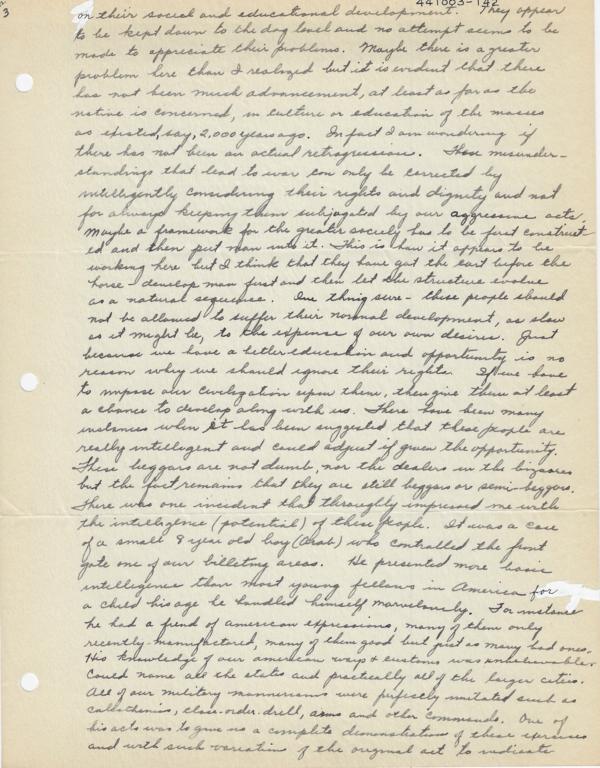 3
441003-142
on their social and educational development. They appear
to be kept down to the dog level and no attempt seems to be
made to appreciate their problems. Maybe there is a greater
problem here than I realized but it is evident that there
has not been much advancement, at least as far as the
native is concerned, in culture or education of the masses
as existed, say, 2,000 years ago. In fact I am wondering if
there has not been an actual retrogression. These misunder-
standings that lead to war can only be corrected by
intelligently considering their rights and dignity and not
for always keeping them subjugated by our aggressive acts.
Maybe a framework for the greater society has to be first construct
ed and then put man into it. This is how it appears to be
working here but I think that they have got the cart before the
horse - develop man first and then let the structure evolve
as a natural sequence. One thing sure - these people should
not be allowed to suffer their normal development, as slow
as it might be, to the expense of our own desires. Just
because we have a better education and opportunity is no
reason why we should ignore their rights. If we have
to impose our civilization upon them, then give them at least
a chance to develop along with us. There have been many
instances when it has been suggested that these people are
really intelligent and could adjust if given the opportunity.
These beggars are not dumb, nor the dealers in the bizaares
but the fact remains that they are still beggars or semi-beggars.
There was one incident that throughly impressed me with
the intelligence (potential) of these people. It was a case
of a small 8 year old boy (Arab) who controlled the front
gate one of our billeting areas. He presented more basic
intelligence than most young fellows in America for
a child his age he handled himself marvelously. For instance
he had a fiend of american expressions, many of them only
recently-manufactured, many of them good but just as many bad ones.
His knowledge of our american ways & customs was unbelievable.
Could name all the states and practically all of the larger cities.
All of our military mannerisms were perfectly imitated such as
calisthenics, close-order-drill, arms and other commands. One of
his acts was to give us a complete demonstration of these exercises
and with such variation of the original act to indicate